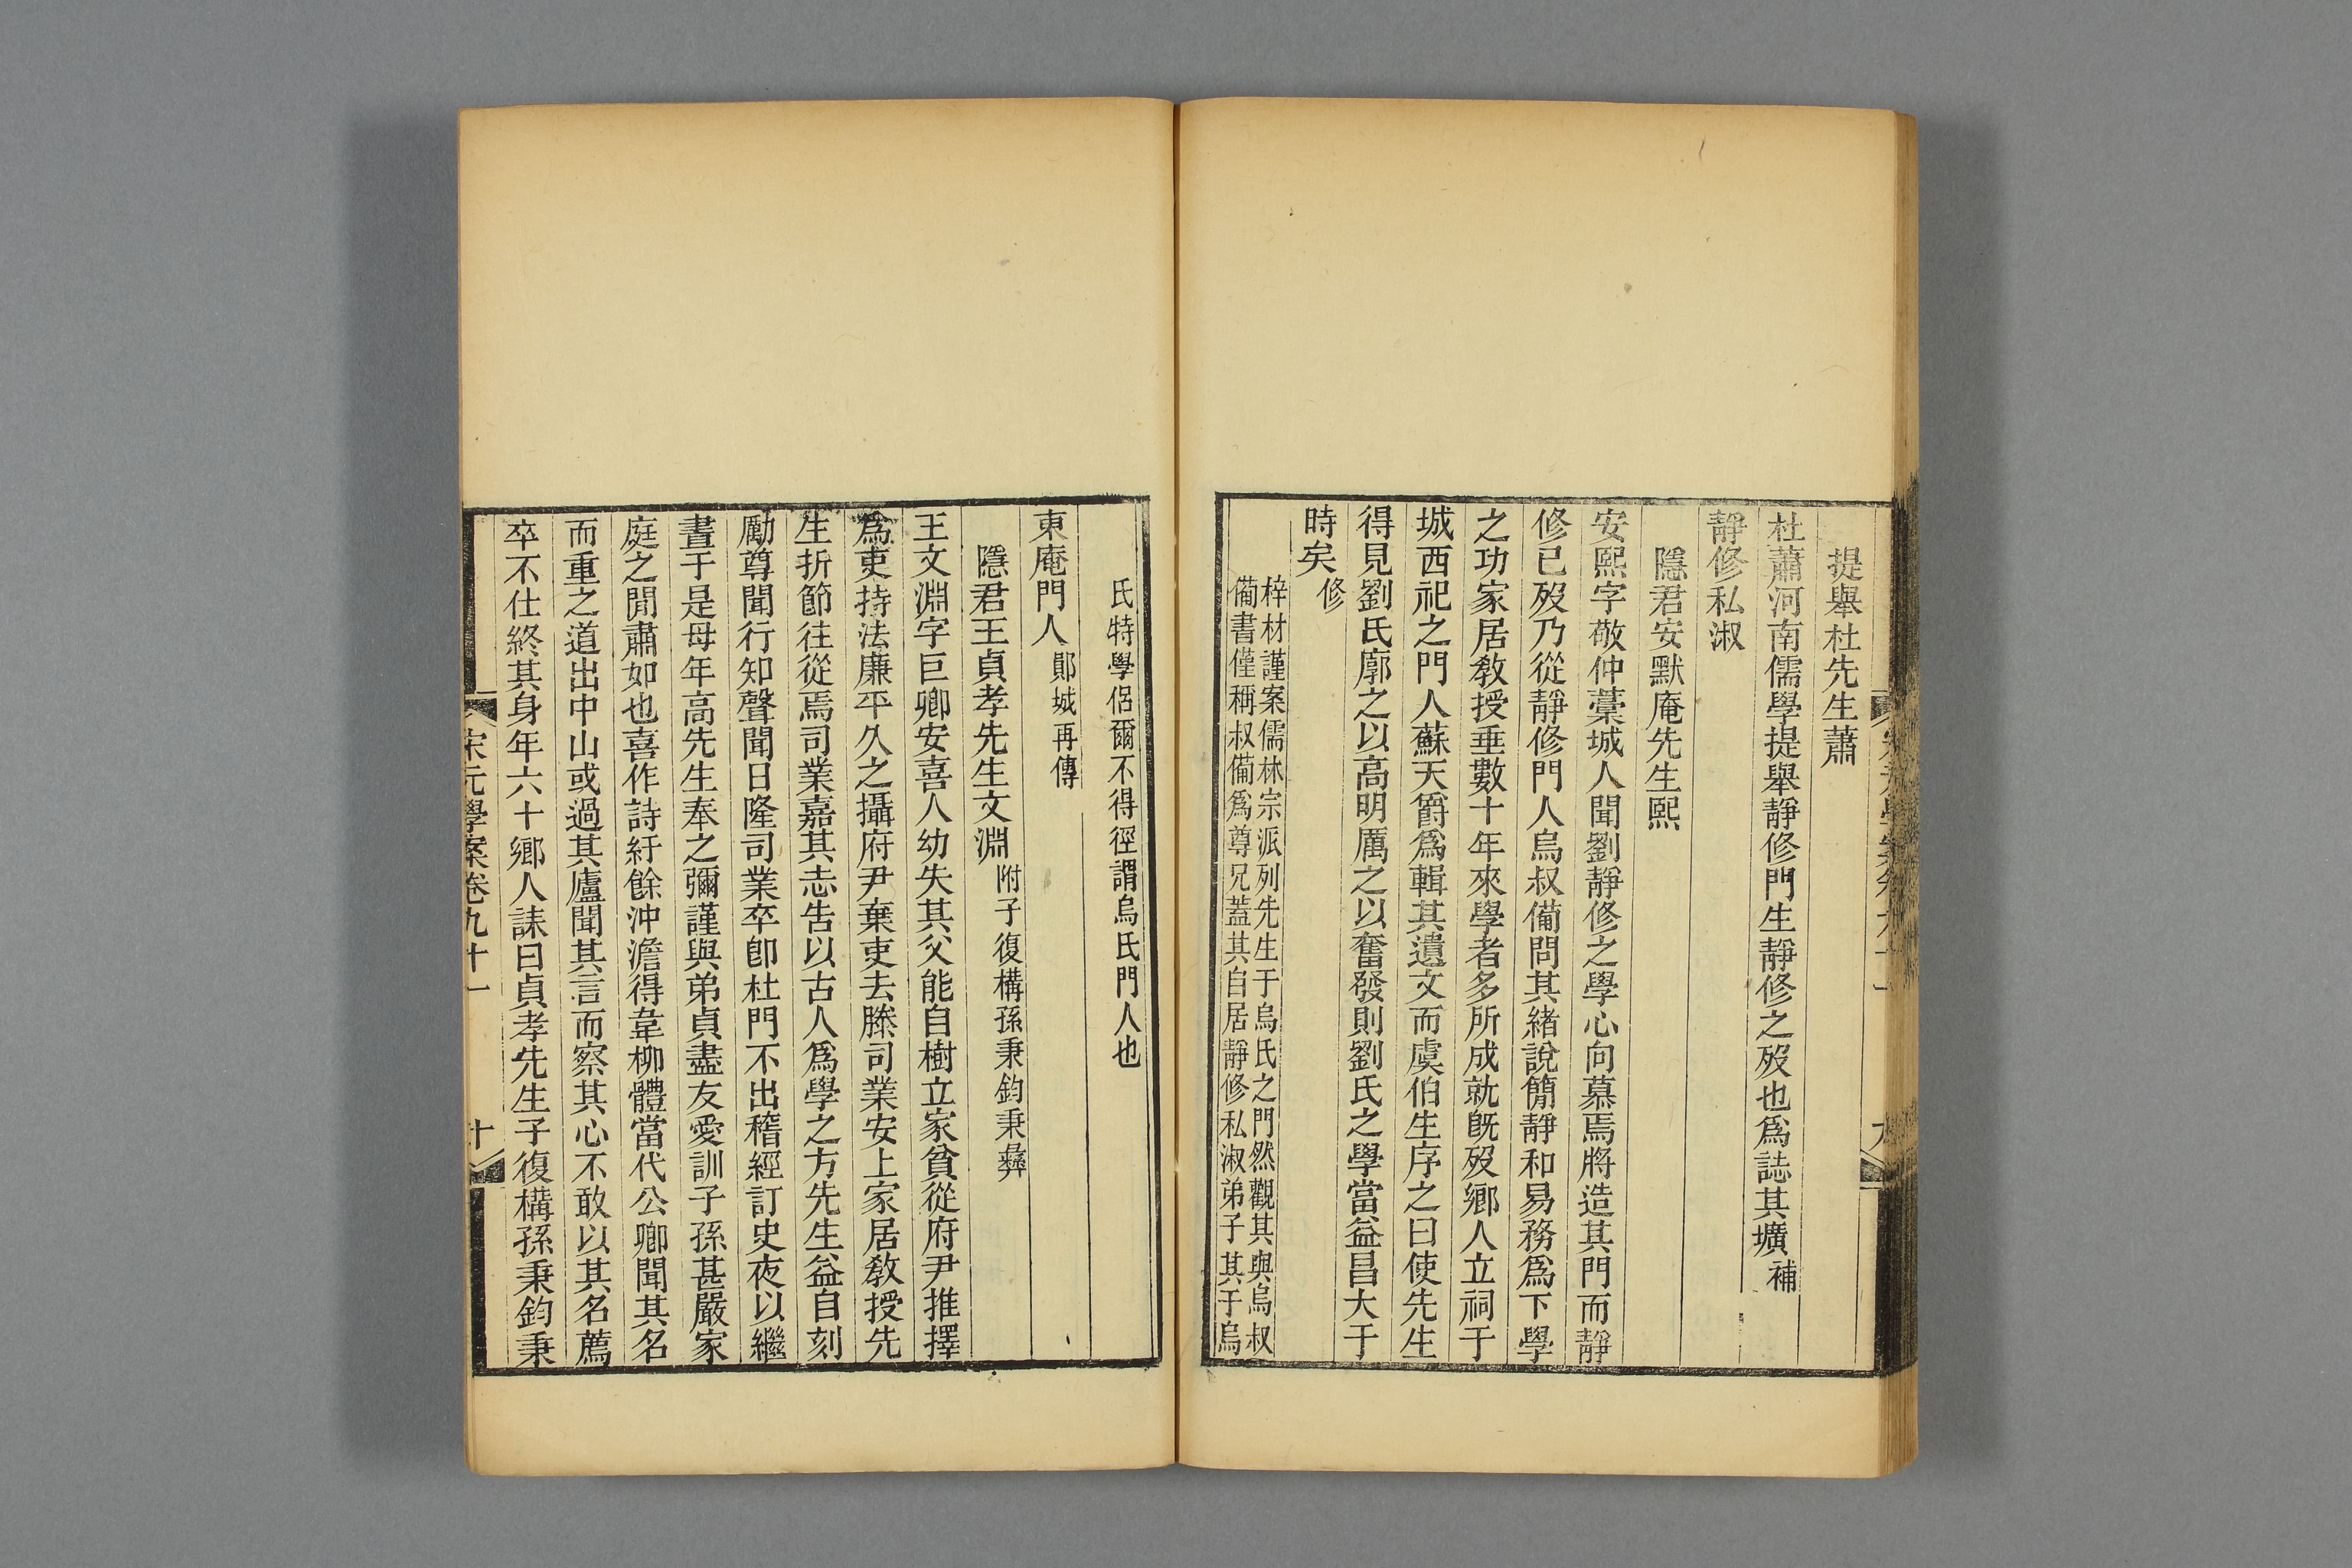 提舉杜先生蕭
杜蕭河南儒學提舉靜修門生靜修之歿也爲誌其壙補
靜修私淑
隱君安默庵先生熙
安熙字敬仲藁城人聞劉靜修之學心向慕焉將造其門而靜
修已歿乃從靜修門人烏叔備問其緒說簡靜和易務爲下學
之功家居教授垂數十年來學者多所成就旣歿鄉人立祠于
城西祀之門人蘇天爵爲輯其遺文而虞伯生序之曰使先生
得見劉氏廓之以高明厲之以奮發則劉氏之學當益昌大于
時矣修
梓材謹案儒林宗派列先生于烏氏之門然觀其與烏叔
備書僅稱叔備爲尊兄蓋其自居靜修私淑弟子其于烏
氏特學侶爾不得徑謂烏氏門人也
東庵門人鄖城再傳
隱君王貞孝先生文淵附子復構孫秉鈞秉彝
王文淵字巨卿安喜人幼失其父能自樹立家貧從府尹推擇
爲吏持法廉平久之攝府尹棄吏去滕司業安上家居教授先
生折節往從焉司業嘉其志告以古人爲學之方先生益自刻
勵尊聞行知聲聞日隆司業卒卽杜門不出稽經訂史夜以繼
晝于是母年高先生奉之彌謹與弟貞盡友愛訓子孫甚嚴家
庭之閒肅如也喜作詩紆餘沖澹得韋柳體當代公卿聞其名
而重之道出中山或過其廬聞其言而察其心不敢以其名薦
卒不仕終其身年六十鄉人誄曰貞孝先生子復構孫秉鈞秉
宋元學案卷九十一
十